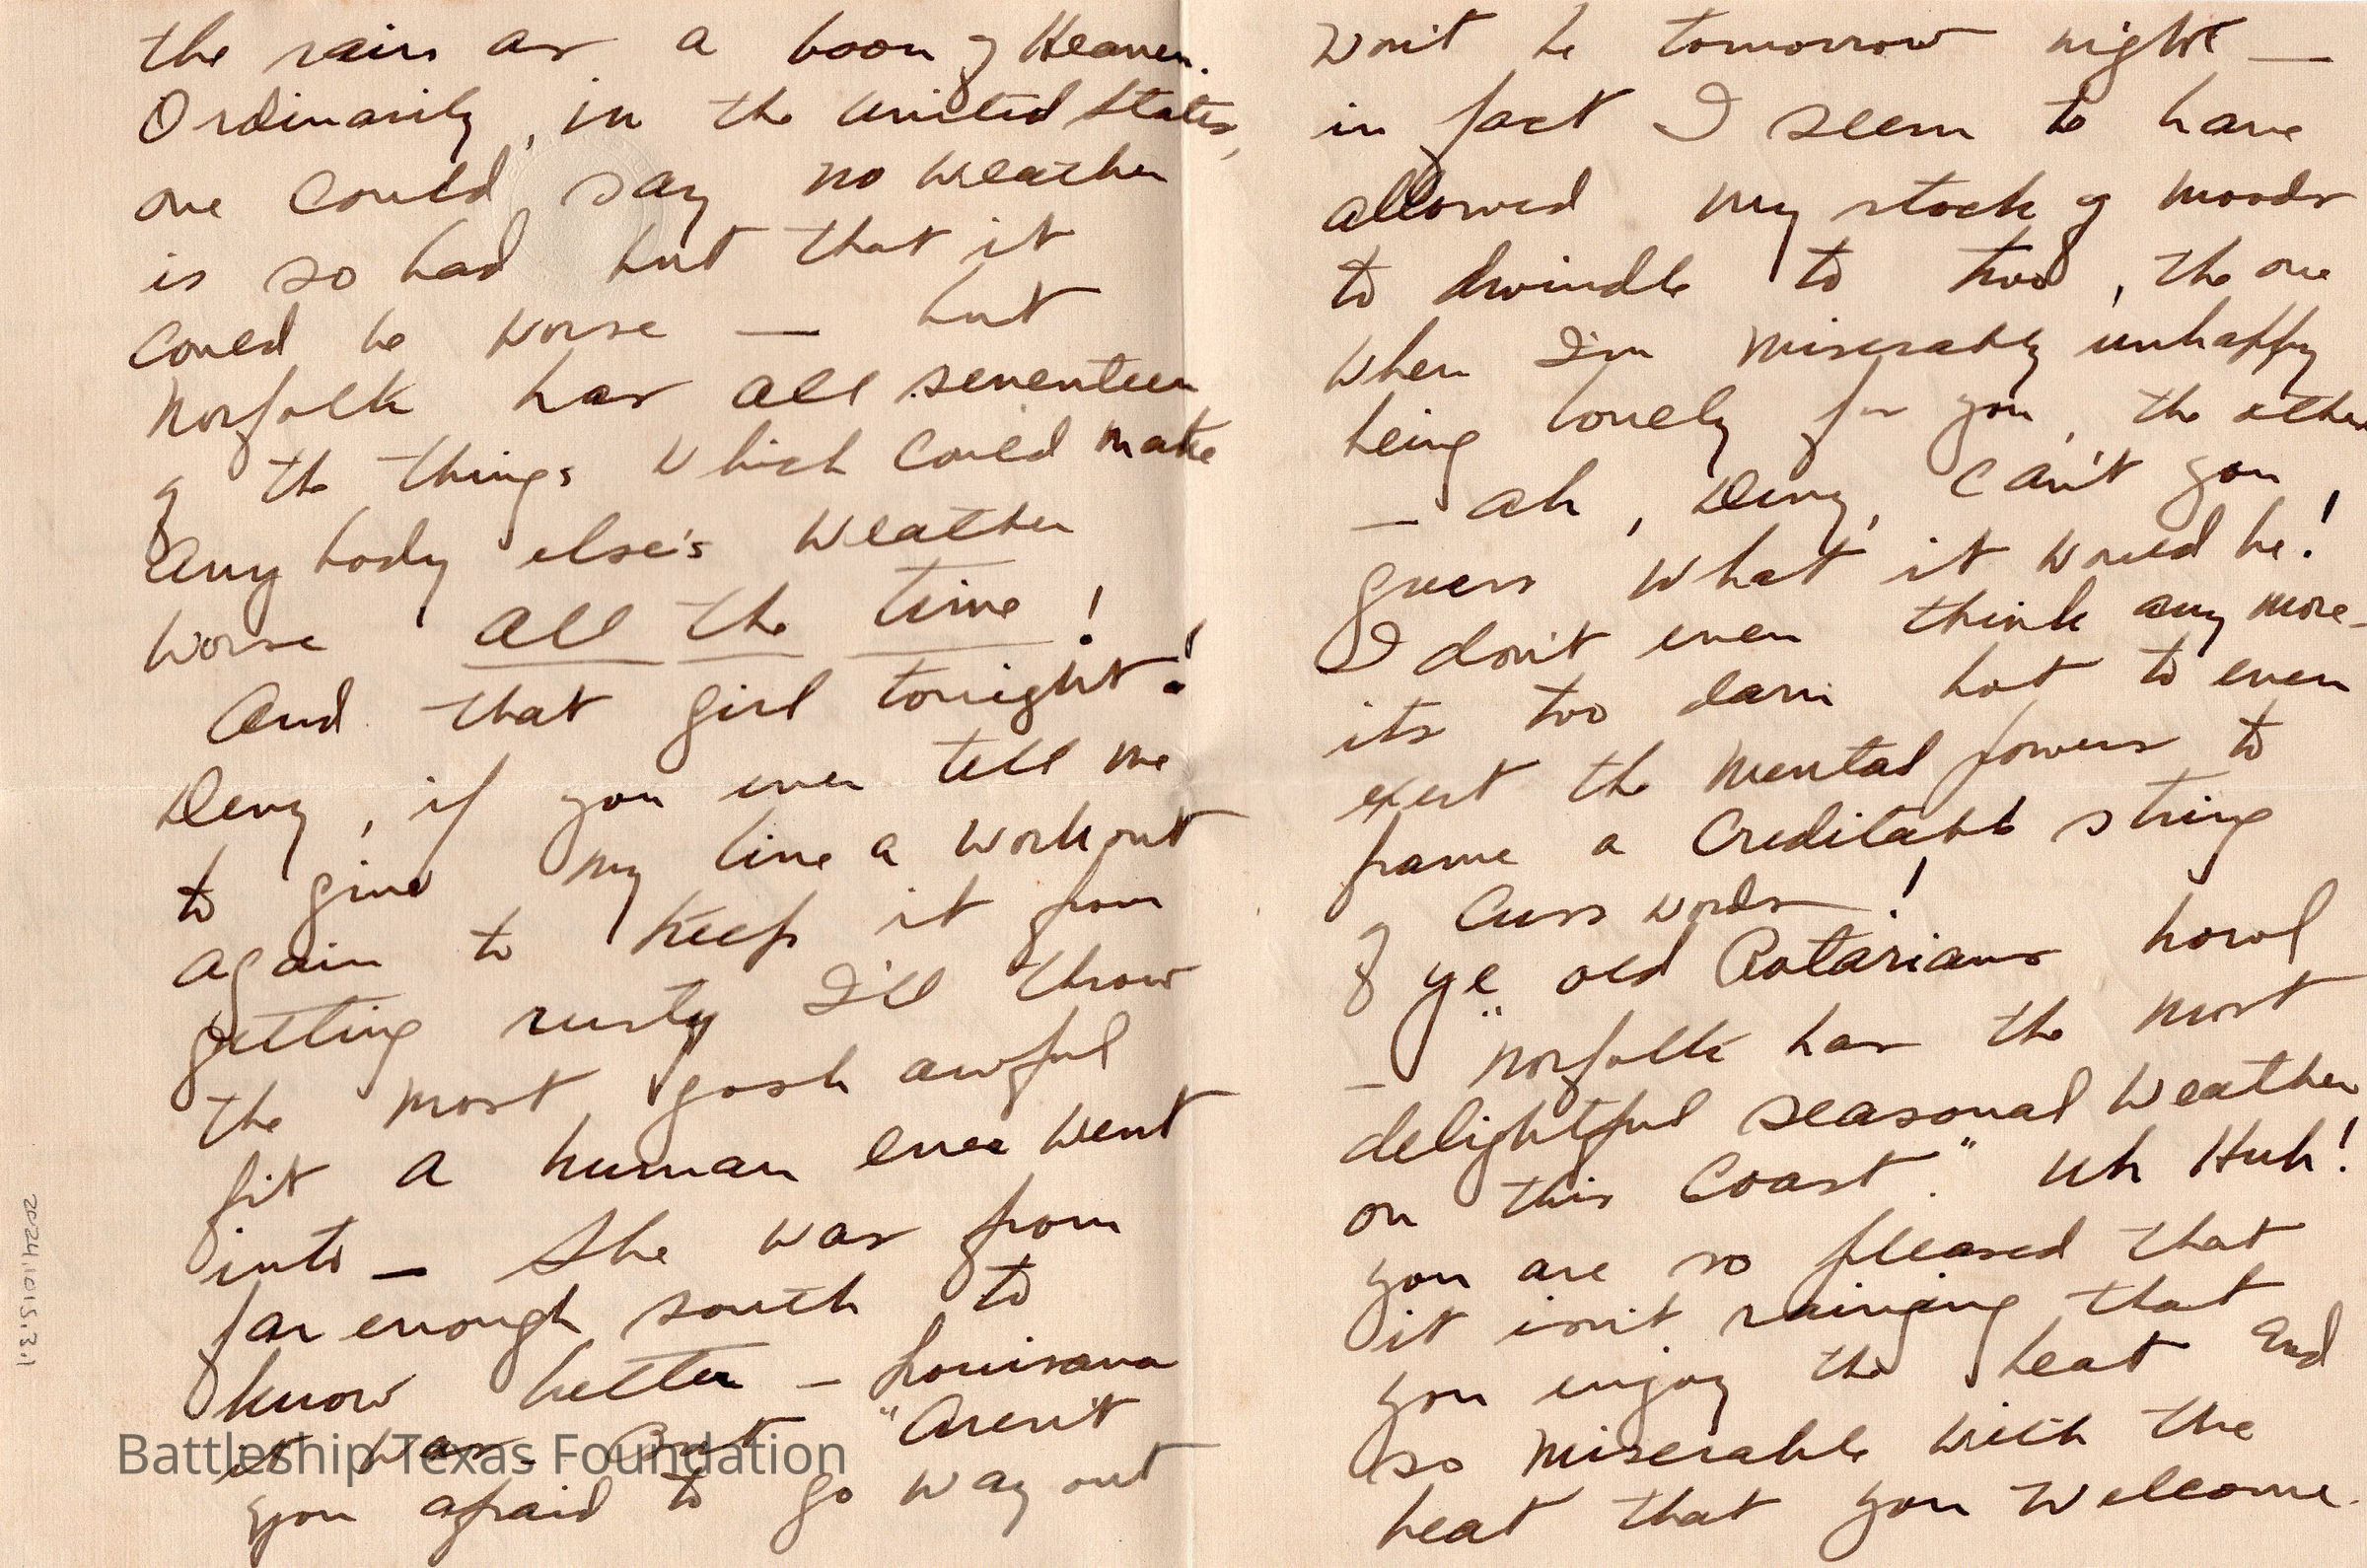 the rain as a boon of Heaven.
Ordinarily, in the United States,
one could say no weather
is so bad but that it
could be worse — but
Norfolk has all seventeen
of the things which could make
any body else's weather
worse all the time!
And that girl tonight!
Deny, if you ever tell me
to give my line a workout
again to keep it from
getting rusty I'll throw
the most gosh awful
fit a human ever went
into — She was from
far enough south to
know better — Louisana
it was — But "Aren't
you afraid to go way out
won't be tomorrow night —
in fact I seem to have
allowed my stock of moods
to dwindle to two, the one
when I'm miserably unhappy
being lonely for you, the other
— ah, Deny, can't you
guess what it would be!
I don't even think any more —
its too darn hot to even
exert the mental powers to
frame a creditable string
of cuss words!
& ye old Rotarians howl
— "Norfolk has the most
delightful seasonal weather
on this Coast." Uh Huh!
you are so pleased that
it isn't raining that
you enjoy the heat and
so miserable with the
heat that you welcome
2024.1015.3.1
Battleship Texas Foundation